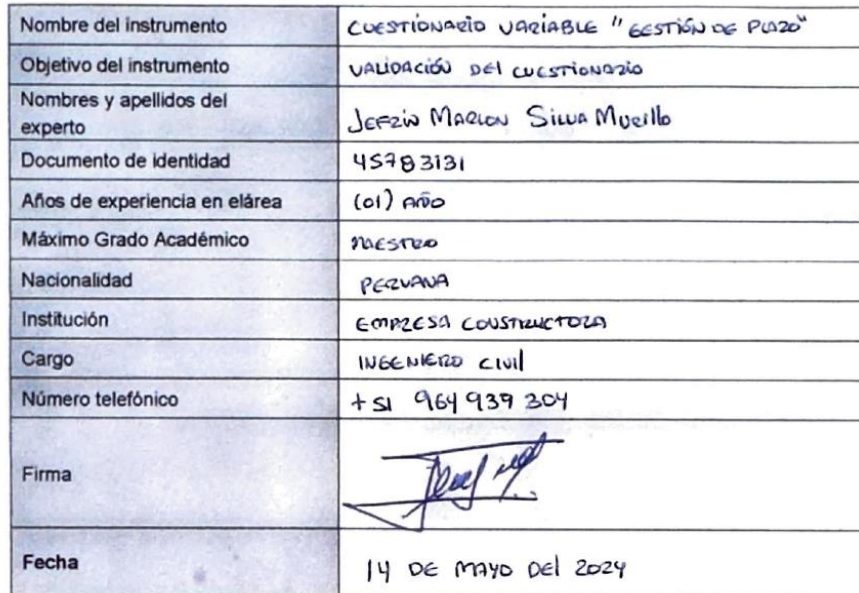 Nombre del instrumento CUESTIONARIO VARIABLE "GESTIÓN DE PLAZO"
Objetivo del instrumento VALIDACIÓN DEL CUESTIONARIO
Nombres y apellidos del
experto JEFZIN MARLON SILVA MURILLO
Documento de identidad 45783131
Años de experiencia en elárea (01) AÑO
Máximo Grado Académico MAESTRO
Nacionalidad PERUANA
Institución EMPRESA CONSTRUCTORA
Cargo INGENIERO CIVIL
Número telefónico +51 964 939 304
Firma
Fecha 14 DE MAYO DEL 2024